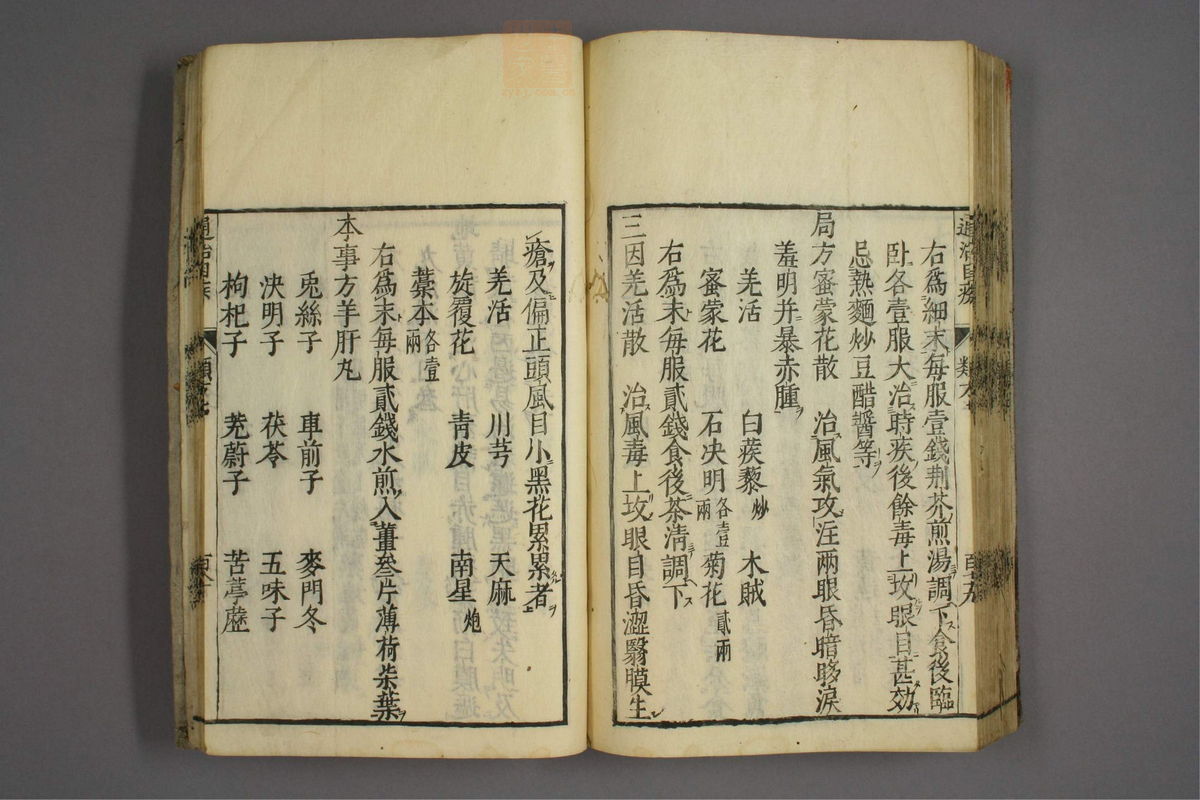 右爲細末每服壹錢荆芥煎湯調下食後臨
卧各壹服大治時疾後餘毒上攻眼目甚効
忌熱麵炒豆醋醬等
局方蜜蒙花散 治風氣攻注兩眼昏暗眵淚
羞明并暴赤腫
羌活 白蒺藜炒 木賊
蜜蒙花 石决明各壹兩 菊花貳兩
右爲末每服貳錢食後茶淸調下
三因羌活散 治風毒上攻眼目昏澀翳膜生
瘡及偏正頭風目小黑花累累者
羌活 川芎 天麻
旋覆花 靑皮 南星炮
藁本各壹兩
右爲末每服貳錢水煎入薑叁片薄荷柒葉
本事方羊肝丸
兎絲子 車前子 麥門冬
决明子 茯苓 五味子
枸杞子 茺蔚子 苦葶藶